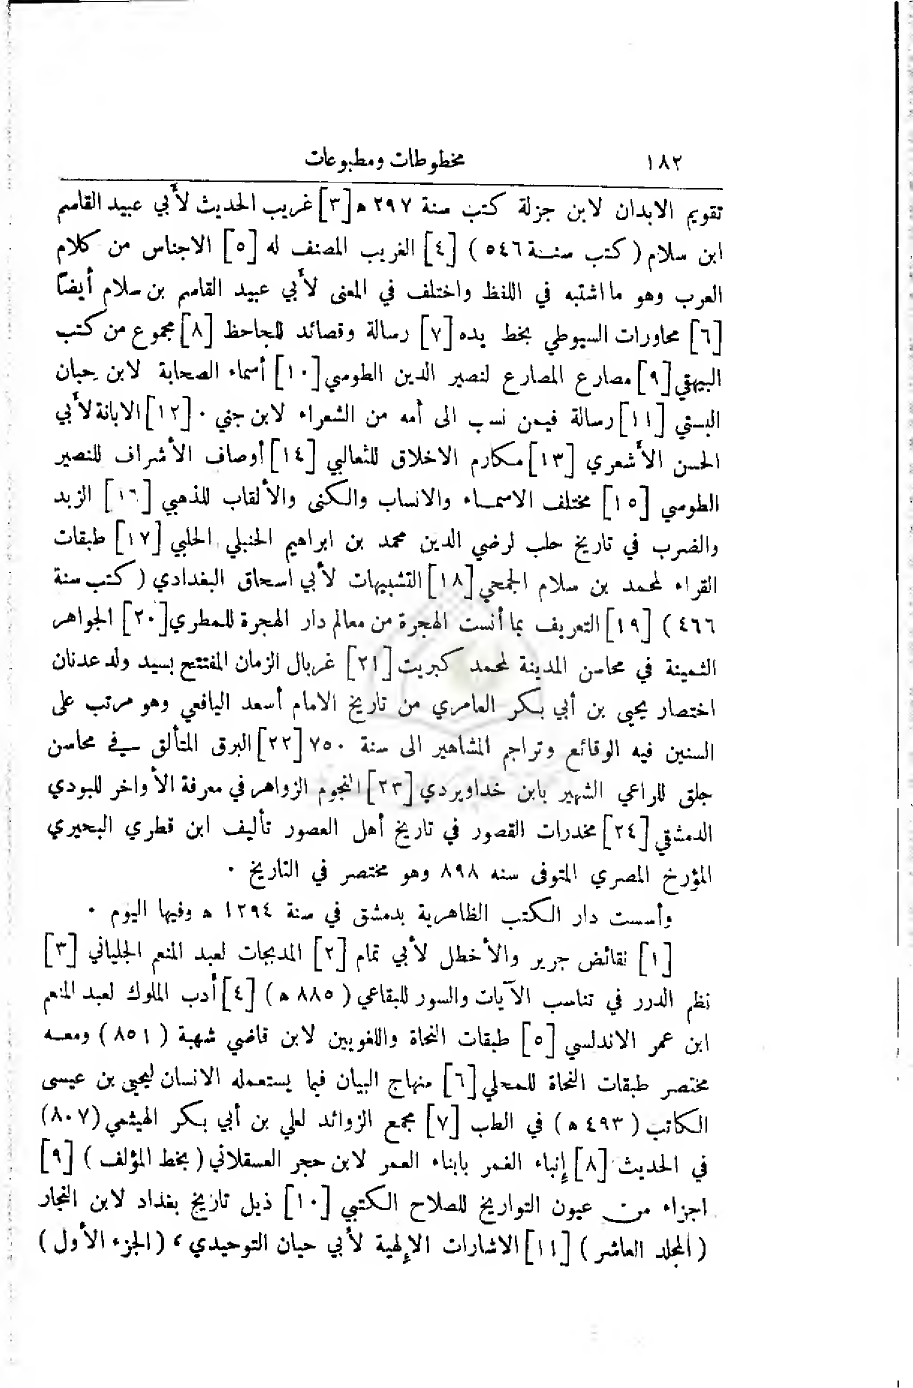 ١٨٢ مخطوطات ومطبوعات
تقويم الابدان لابن جزلة كتب سنة ٢٩٧ ه [٣] غريب الحديث لأبي عبيد القاسم
ابن سلام ( كتب سنة ٥٤٦ ) [٤] الغريب المصنف له [٥] الاجناس من كلام
العرب وهو ما اشتبه في اللفظ واختلف في المعنى لأبي عبيد القاسم بن سلام أيضاً
[٦] محاورات السيوطي بخط يده [٧] رسالة وقصائد للجاحظ [٨] مجموع من كتب
البيهقي [٩] مصارع المصارع لنصير الدين الطوسي [١٠] أسماء الصحابة لابن حبان
البستي [١١] رسالة فيمن نسب الى أمه من الشعراء لابن جني ٠ [١٢] الابانة لأبي
الحسن الأشعري [١٣] مكارم الاخلاق للثعالبي [١٤] أوصاف الأشراف للنصير
الطوسي [١٥] مختلف الاسماء والانساب والكنى والألقاب للذهبي [١٦] الزبد
والضرب في تاريخ حلب لرضي الدين محمد بن ابراهيم الحنبلي الحلبي [١٧] طبقات
القراء لمحمد بن سلام الجمحي [١٨] التشبيهات لأبي اسحاق البغدادي ( كتب سنة
٤٦٦ ) [١٩] التعريف بما أنست الهجرة من معالم دار الهجرة للمطري [٢٠] الجواهر
الثمينة في محاسن المدينة لمحمد كبريت [٢١] غربال الزمان المفتتح بسيد ولد عدنان
اختصار يحيى بن أبي بكر العامري من تاريخ الامام أسعد اليافعي وهو مرتب على
السنين فيه الوقائع وتراجم المشاهير الى سنة ٧٥٠ [٢٢] البرق المتألق في محاسن
جلق للراعي الشهير بابن خداويردي [٢٣] النجوم الزواهر في معرفة الأواخر للبودي
الدمشقي [٢٤] مخدرات القصور في تاريخ أهل العصور تأليف ابن قطري البحيري
المؤرخ المصري المتوفى سنه ٨٩٨ وهو مختصر في التاريخ ٠
وأسست دار الكتب الظاهرية بدمشق في سنة ١٢٩٤ ه وفيها اليوم ٠
[١] نقائض جرير والأخطل لأبي تمام [٢] المدبجات لعبد المنعم الجلياني [٣]
نظم الدرر في تناسب الآيات والسور للبقاعي ( ٨٨٥ ه ) [٤] أدب الملوك لعبد المنعم
ابن عمر الاندلسي [٥] طبقات النحاة واللغويين لابن قاضي شهبة ( ٨٥١ ) ومعه
مختصر طبقات النحاة للمحلي [٦] منهاج البيان فيما يستعمله الانسان ليحيى بن عيسى
الكاتب ( ٤٩٣ ه ) في الطب [٧] مجمع الزوائد لعلي بن أبي بكر الهيثمي (٨٠٧)
في الحديث [٨] إنباء الغمر بابناء العمر لابن حجر العسقلاني ( بخط المؤلف ) [٩]
اجزاء من عيون التواريخ للصلاح الكتبي [١٠] ذيل تاريخ بغداد لابن النجار
( المجلد العاشر ) [١١] الاشارات الالهية لأبي حيان التوحيدي ، ( الجزء الأول )